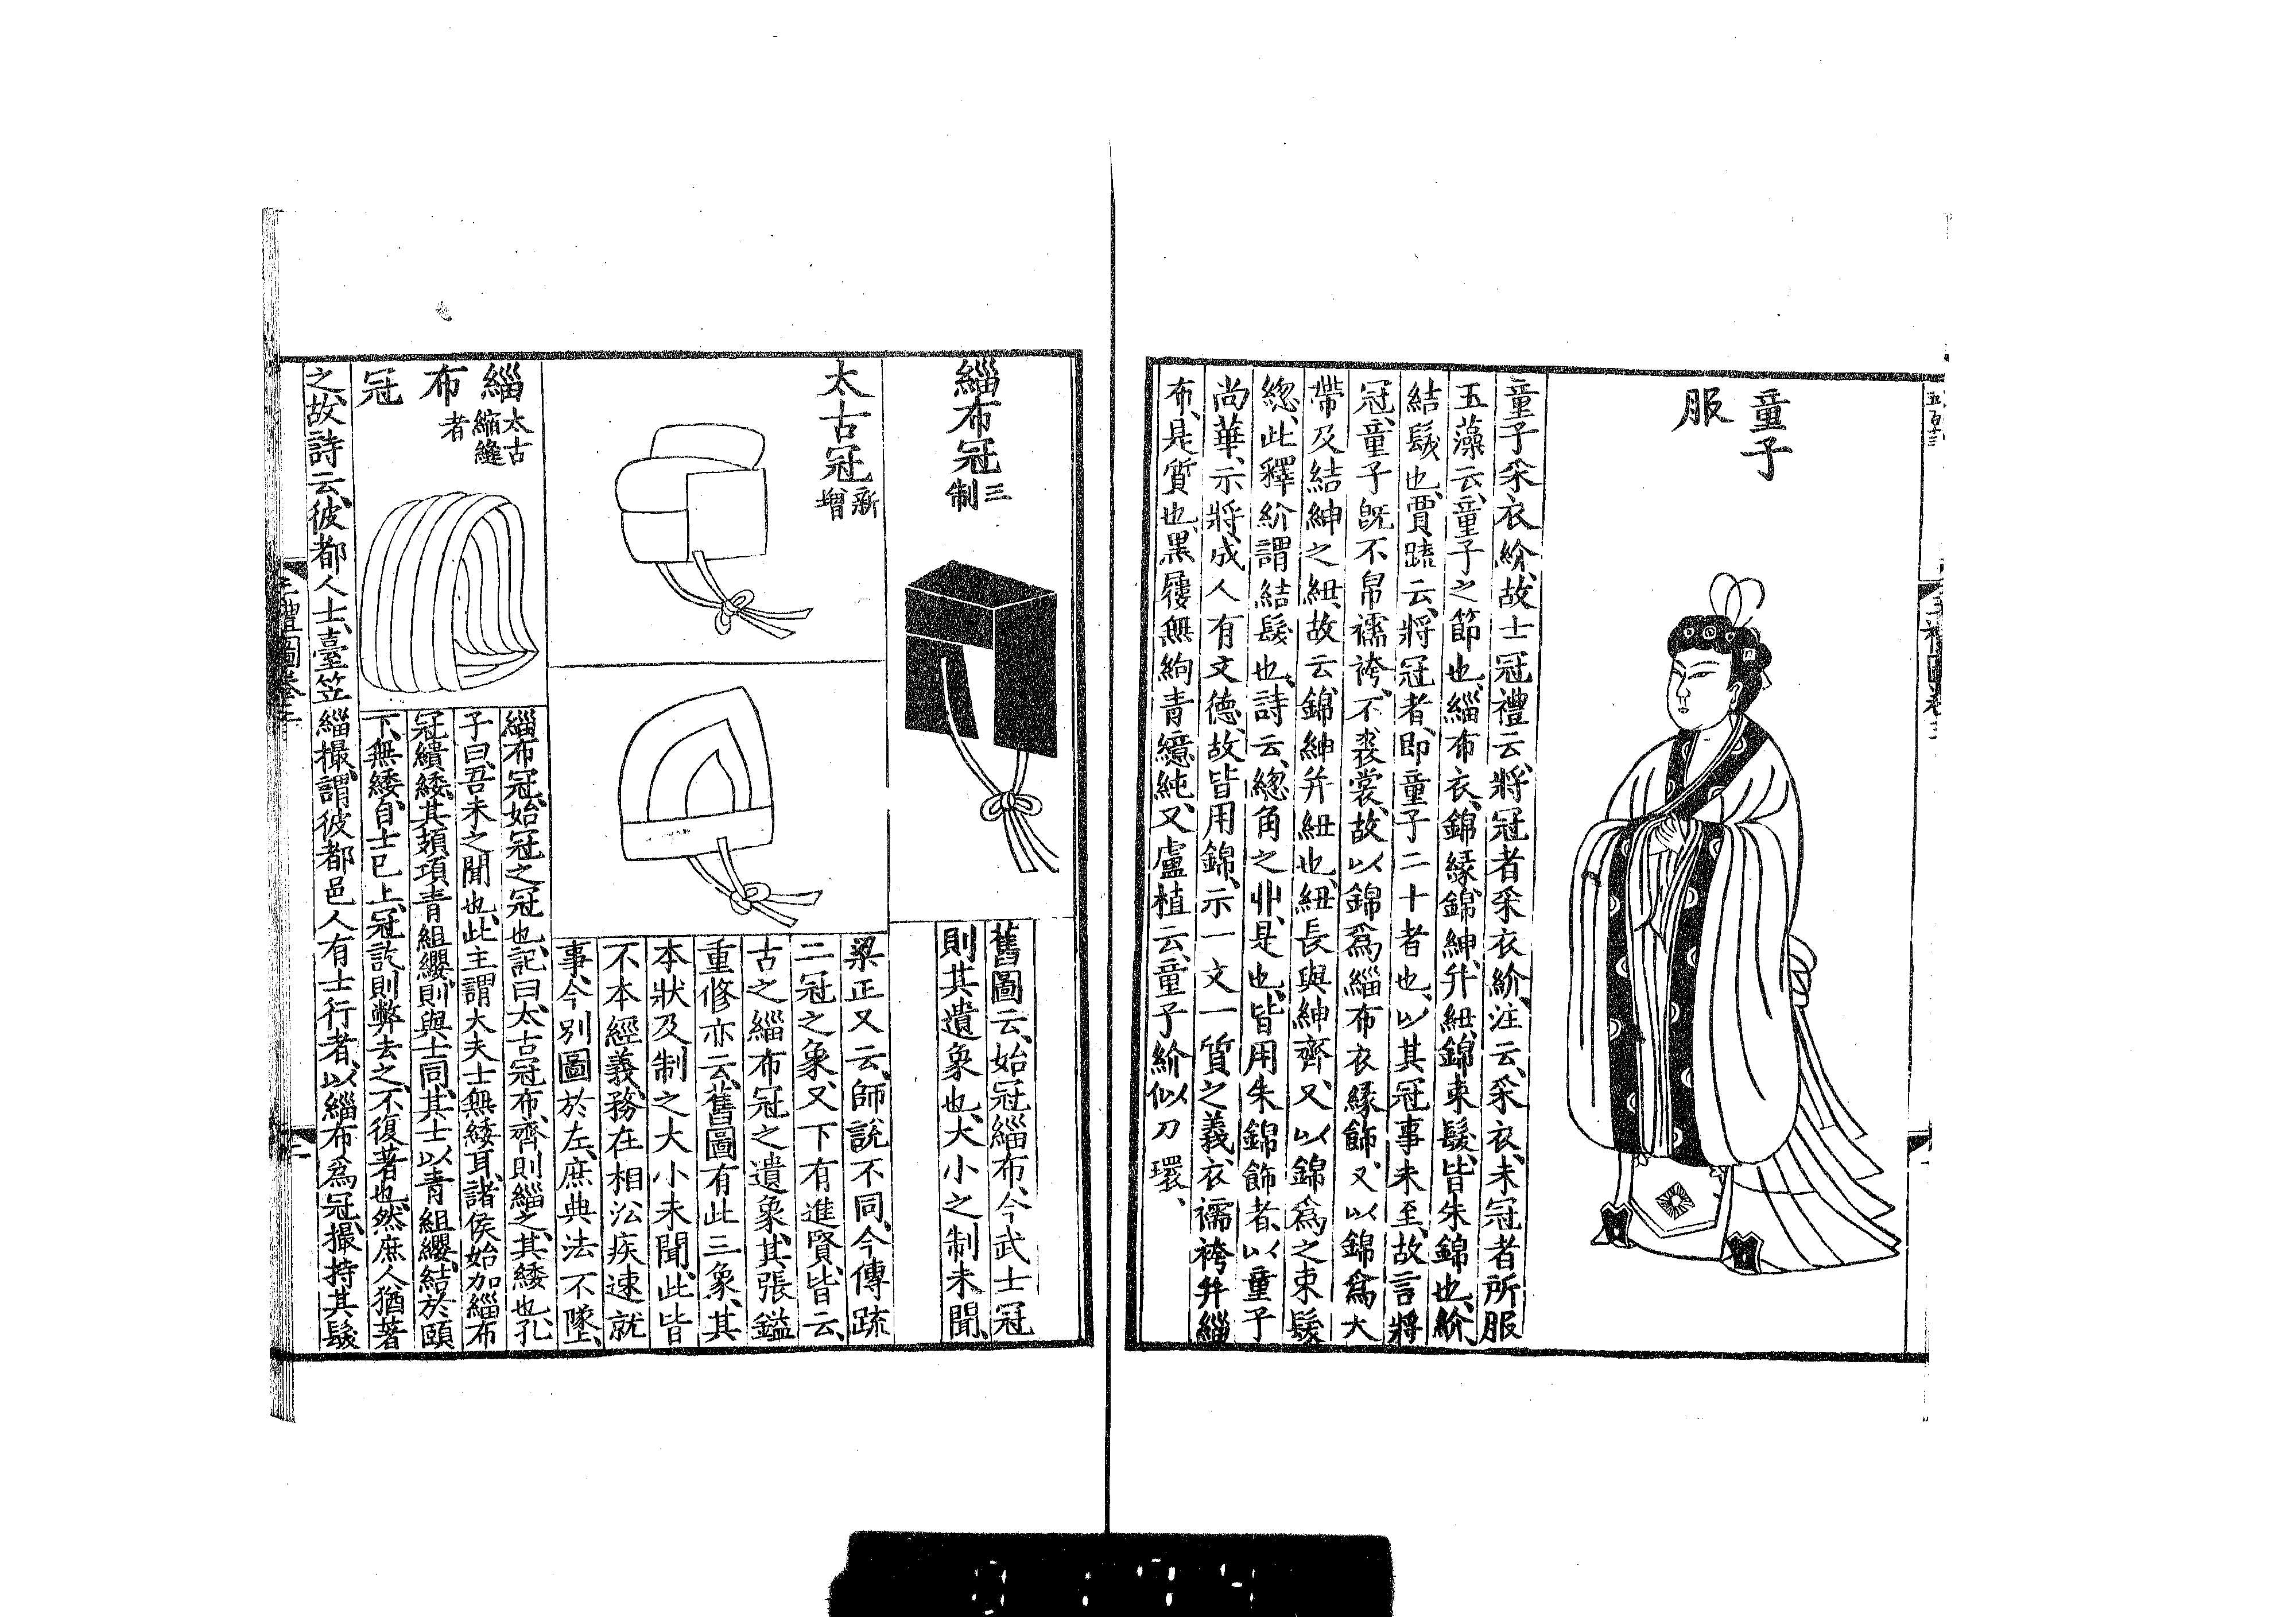 童子
服
童子采衣紒、故士冠禮云、將冠者采衣紒、注云、采衣、未冠者所服
玉藻云、童子之節也、緇布衣、錦緣、錦紳、幷紐、錦束髮、皆朱錦也、紒、
結髮也、賈䟽云、將冠者、即童子二十者也、以其冠事未至、故言將
冠、童子既不帛襦袴、不裘裳、故以錦爲緇布衣緣飾、又以錦爲大
帶及結紳之紐、故云錦紳幷紐也、紐長與紳齊、又以錦爲之束髮
緫、此釋紒謂結髮也、詩云、緫角之丱、是也、皆用朱錦飾者、以童子
尚華、示將成人有文德、故皆用錦、示一文一質之義、衣襦袴幷緇
布、是質也、黑屨無絇青繶純、又盧植云、童子紒似刀環、
緇布冠三制
舊圖云、始冠緇布、今武士冠
則其遺象也、大小之制未聞、
太古冠新增
梁正又云、師說不同、今傳䟽
二冠之象、又下有進賢、皆云、
古之緇布冠之遺象、其張鎰
重修亦云、舊圖有此三象、其
本狀及制之大小未聞、此皆
不本經義、務在相沿疾速就
事、今別圖於左、庶典法不墜、
緇布冠太古縮縫者
緇布冠、始冠之冠也、記曰、太古冠布、齊則緇之、其緌也、孔
子曰、吾未之聞也、此主謂大夫士無緌耳、諸侯始加緇布
冠繢緌、其頍項青組纓、則與士同、其士以青組纓、結於頤
下、無緌、自士已上、冠訖則弊去之、不復著也、然庶人猶著
之、故詩云、彼都人士、臺笠緇撮、謂彼都邑人有士行者、以緇布爲冠、撮持其髮
三禮圖卷三